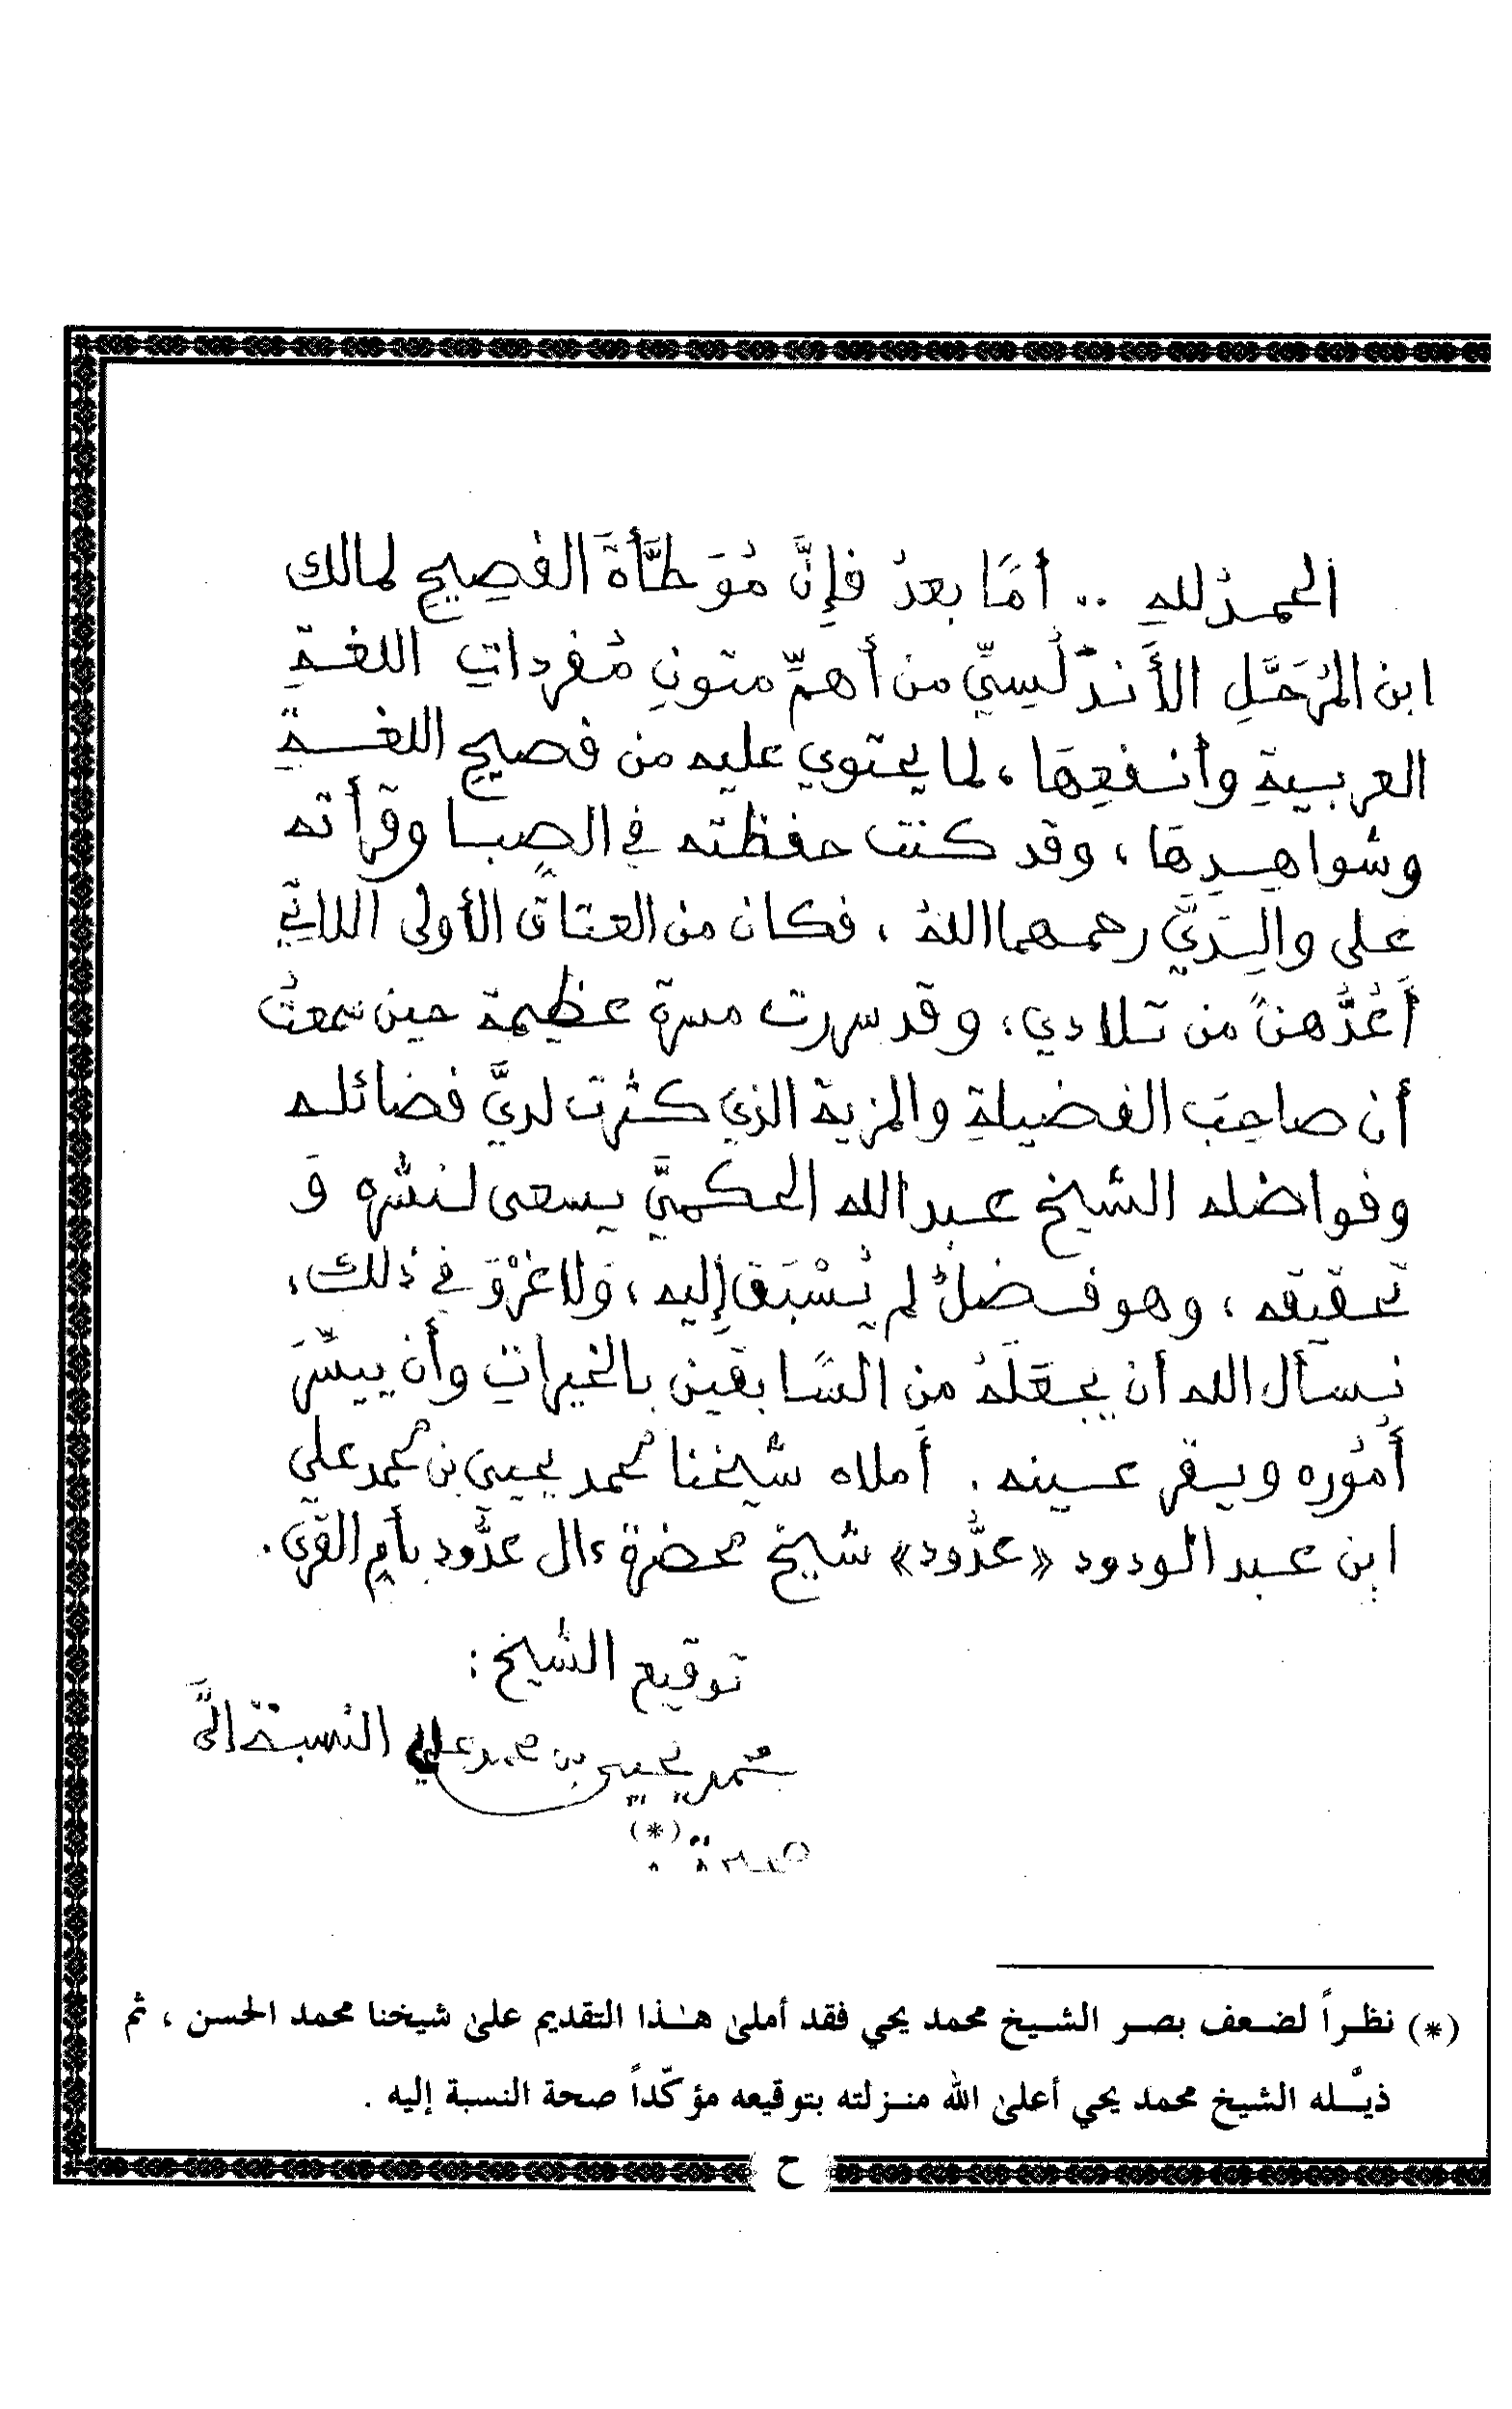 الحمدُ للهِ .. أمَّا بعدُ فإنَّ مُوَطَّأةَ الفصِيحِ لمالك
ابن المُرَحَّلِ الأَندَلُسِيِّ من أهمِّ متونِ مُفرداتِ اللغةِ
العربيةِ وأنفعِهَا ، لما يحتوي عليه من فصيحِ اللغةِ
وشواهِدِهَا ، وقد كنت حفظته في الصِبا وقرأته
على والِدَيَّ رحمهما اللهُ ، فكان من العتاق الأولى اللاتي
أَعُدُّهنَّ من تلادي ، وقد سررت مسرة عظيمة حين سمعتُ
أن صاحبَ الفضيلةِ والمزية الذي كثرت لديَّ فضائله
وفواضله الشيخ عبد الله الحكميَّ يسعى لنشره وَ
تحقيقه ، وهو فضلٌ لم يُسْبَق إليه ، وَلا غَرْوَ في ذلك ،
نسأل الله أن يجعَلَهُ من السَّابقين بالخيراتِ وأن ييسِّرَ
أُمُوره ويقر عينه . أملاه شيخنا محمد يحيى بن محمد علي
ابن عبد الودود «عدُّود» شيخ محضرة ءال عدُّود بأم القرى .
توقيع الشيخ :
محمد يحيى بن محمد علي النسبة إليَّ
صحيحة (*)
(*) نظراً لضعف بصر الشيخ محمد يحي فقد أملىٰ هـٰذا التقديم علىٰ شيخنا محمد الحسن ، ثم
ذيَّله الشيخ محمد يحي أعلىٰ الله منزلته بتوقيعه مؤكّداً صحة النسبة إليه .
ح